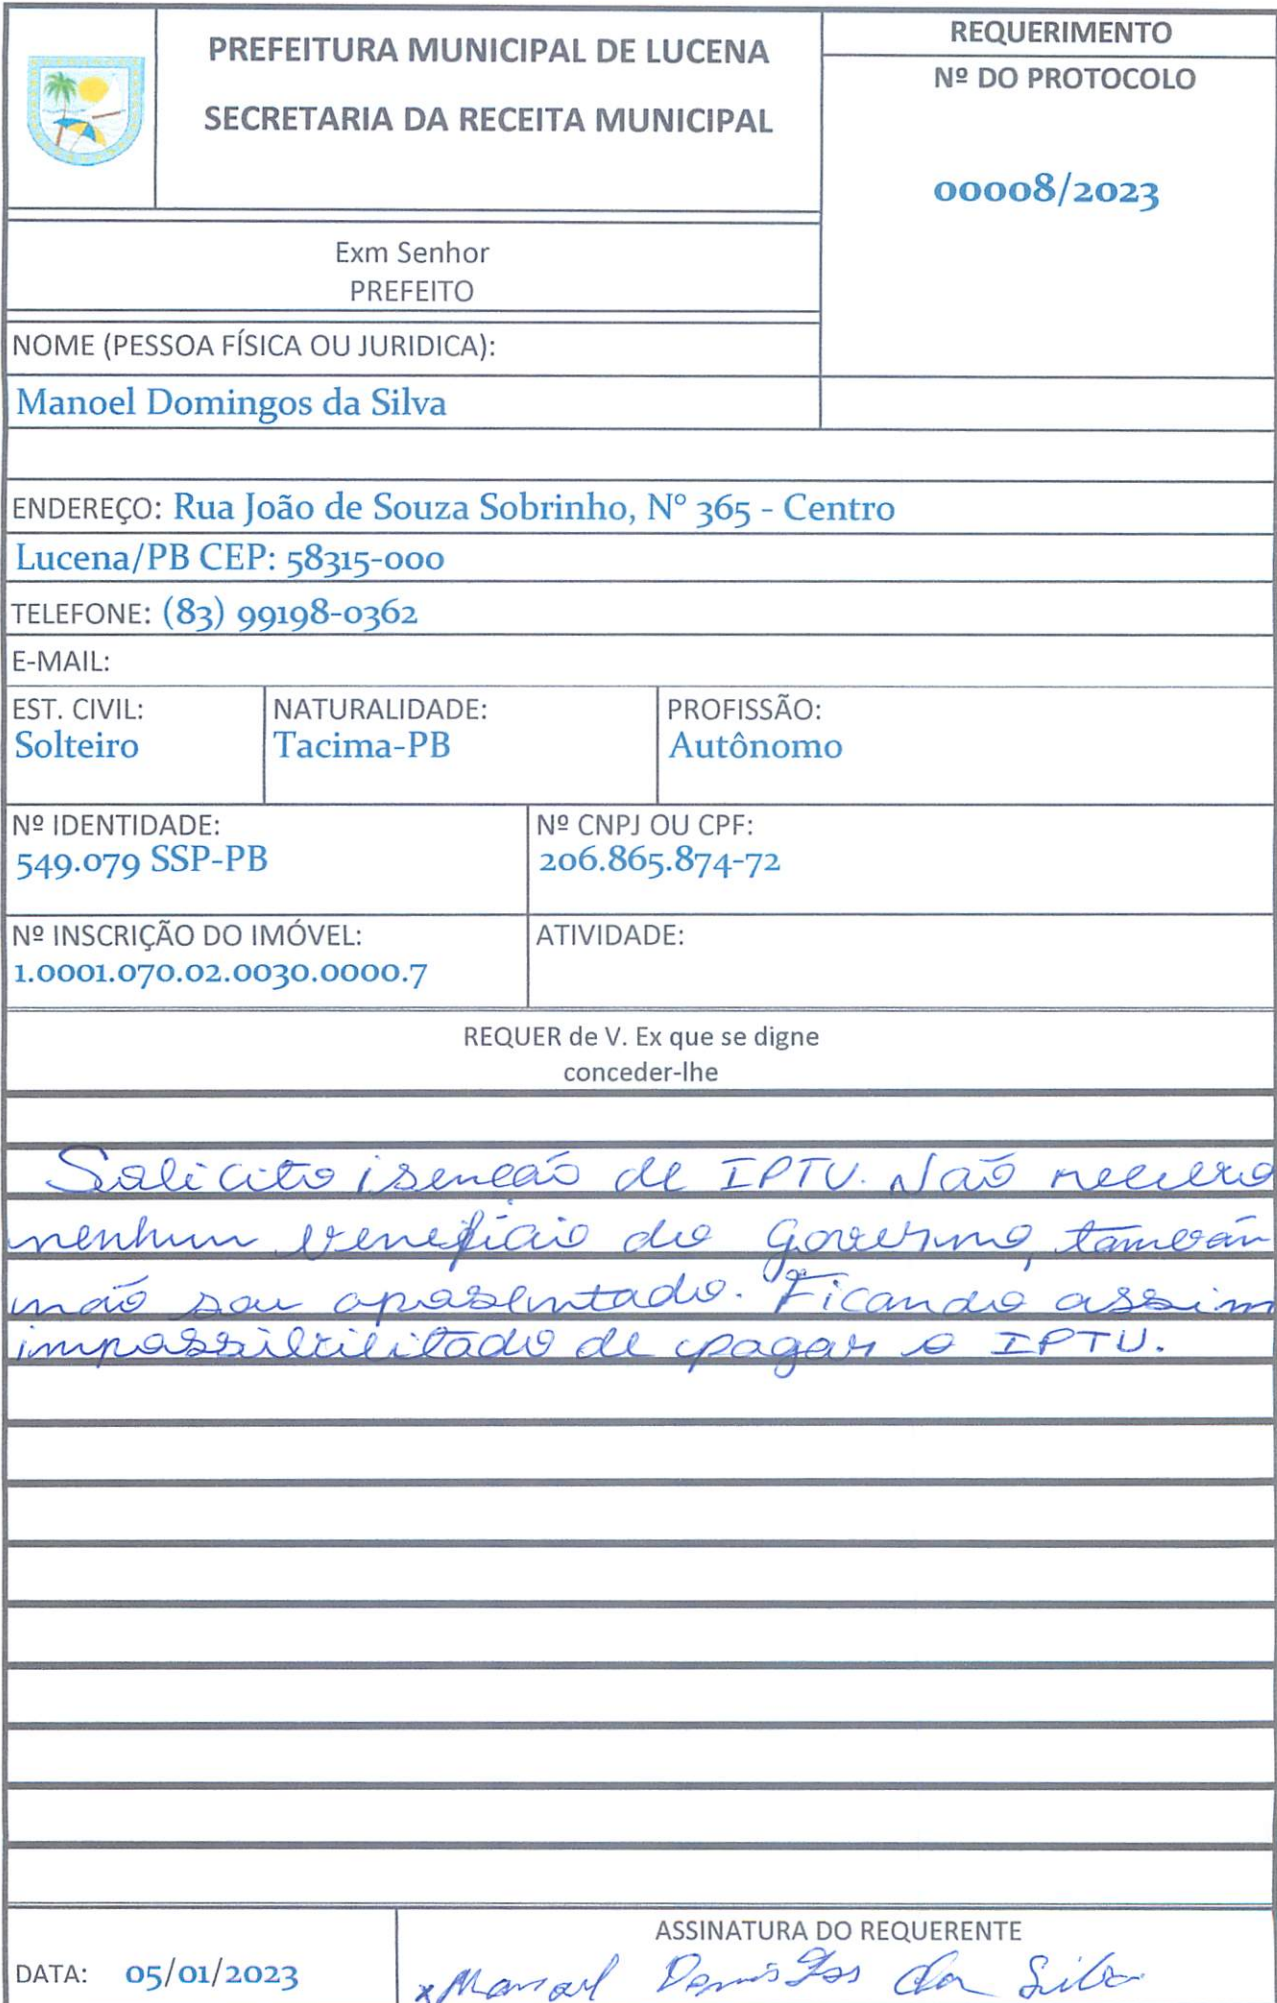 PREFEITURA MUNICIPAL DE LUCENA
SECRETARIA DA RECEITA MUNICIPAL
REQUERIMENTO
Nº DO PROTOCOLO
00008/2023
Exm Senhor
PREFEITO
NOME (PESSOA FÍSICA OU JURIDICA):
Manoel Domingos da Silva
ENDEREÇO: Rua João de Souza Sobrinho, N° 365 - Centro
Lucena/PB CEP: 58315-000
TELEFONE: (83) 99198-0362
E-MAIL:
EST. CIVIL:
Solteiro
NATURALIDADE:
Tacima-PB
PROFISSÃO:
Autônomo
Nº IDENTIDADE:
549.079 SSP-PB
Nº CNPJ OU CPF:
206.865.874-72
Nº INSCRIÇÃO DO IMÓVEL:
1.0001.070.02.0030.0000.7
ATIVIDADE:
REQUER de V. Ex que se digne
conceder-lhe
Solicito isenção de IPTU. Não recebo
nenhum benefício do Governo, também
não sou aposentado. Ficando assim
impossibilitado de pagar o IPTU.
DATA: 05/01/2023
ASSINATURA DO REQUERENTE
x Manoel Domingos da Silva